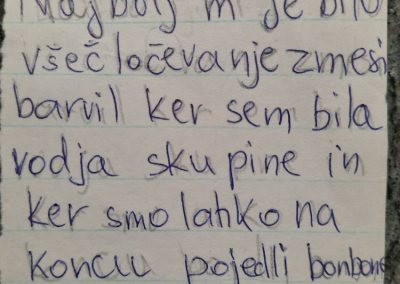 Najbolj mi je bilo
všeč ločevanje zmesi
barvil ker sem bila
vodja skupine in
ker smo lahko na
koncu pojedli bonbone